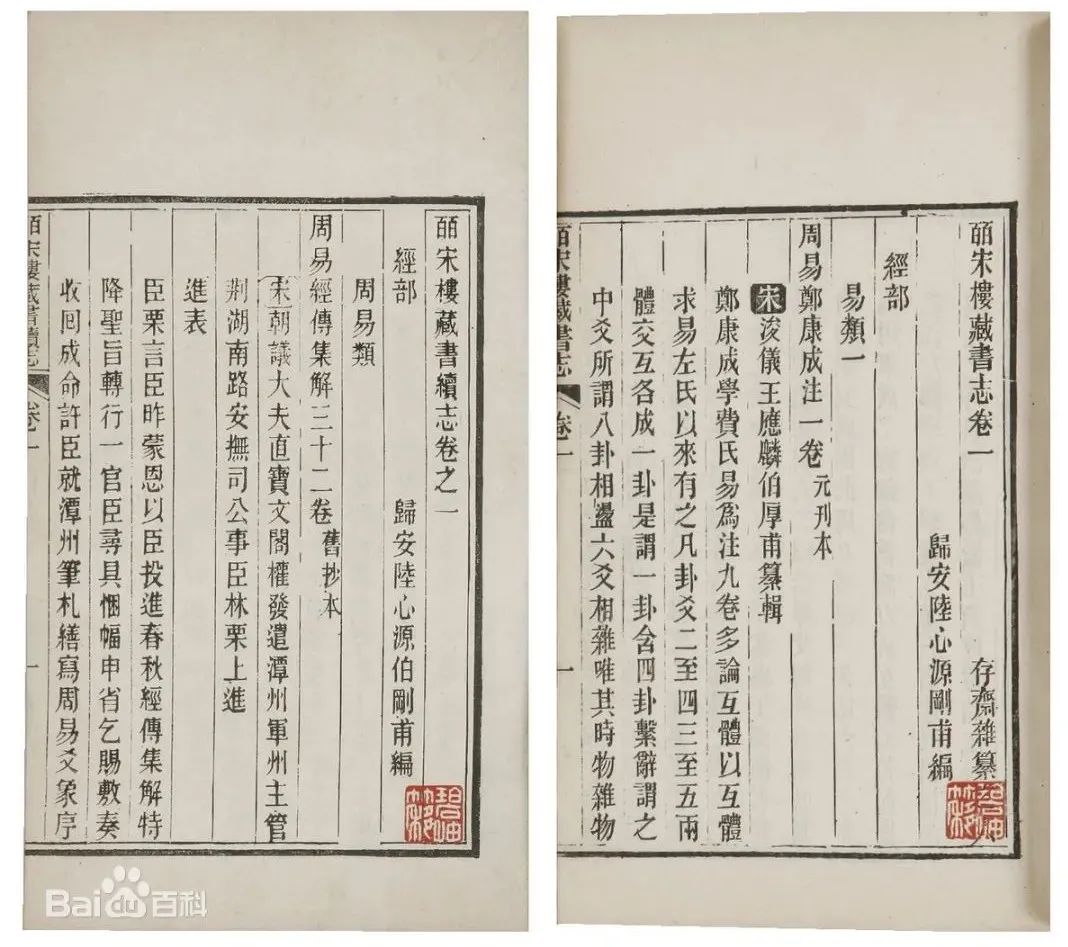 皕宋樓藏書志卷一
存齋雜纂
歸安陸心源剛甫編
經部
易類一
周易鄭康成注一卷 元刊本
宋浚儀王應麟伯厚甫纂輯
鄭康成學費氏易爲注九卷多論互體以互體
求易左氏以來有之凡卦爻二至四三至五兩
體交互各成一卦是謂一卦含四卦繫辭謂之
中爻所謂八卦相盪六爻相雜唯其時物雜物
皕宋樓藏書志 卷一 一
皕宋樓藏書續志卷之一
歸安陸心源伯剛甫編
經部
周易類
周易經傳集解三十二卷 舊抄本
宋朝議大夫直寶文閣權發遣潭州軍州主管
荆湖南路安撫司公事臣林栗上進
進表
臣栗言臣昨蒙恩以臣投進春秋經傳集解特
降聖旨轉行一官臣尋具悃愊申省乞賜敷奏
收回成命許臣就潭州筆札繕寫周易爻象序
皕宋樓藏書續志 卷一 一
Bai百科